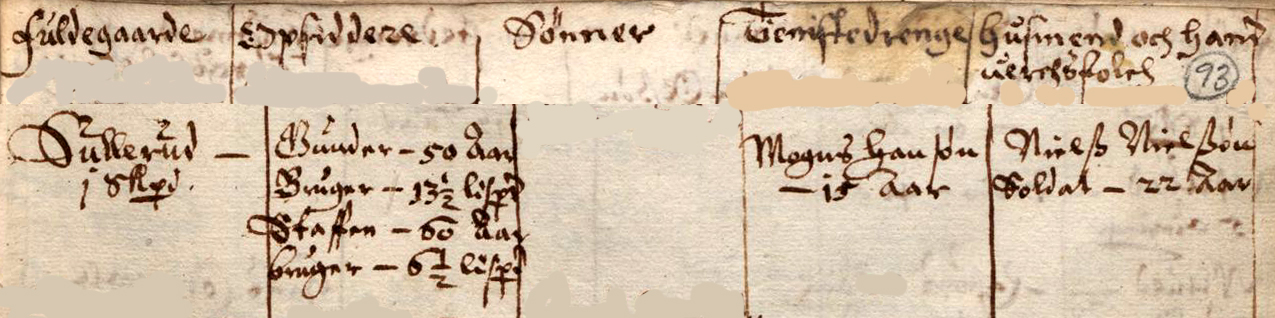 fuldegaarde
Opsiddere
Sønner
Tienistedrenge
Husmend och hand
uerchsfolch
93
Sullerud —
j Skpd.
Gunder – 50 Aar
Bruger – 13½ lispd
Staffen – 60 Aar
bruger – 6½ lispd
Mogns Hansøn
– 15 Aar
Nielß Nielßøn
Soldat – 22 Aar